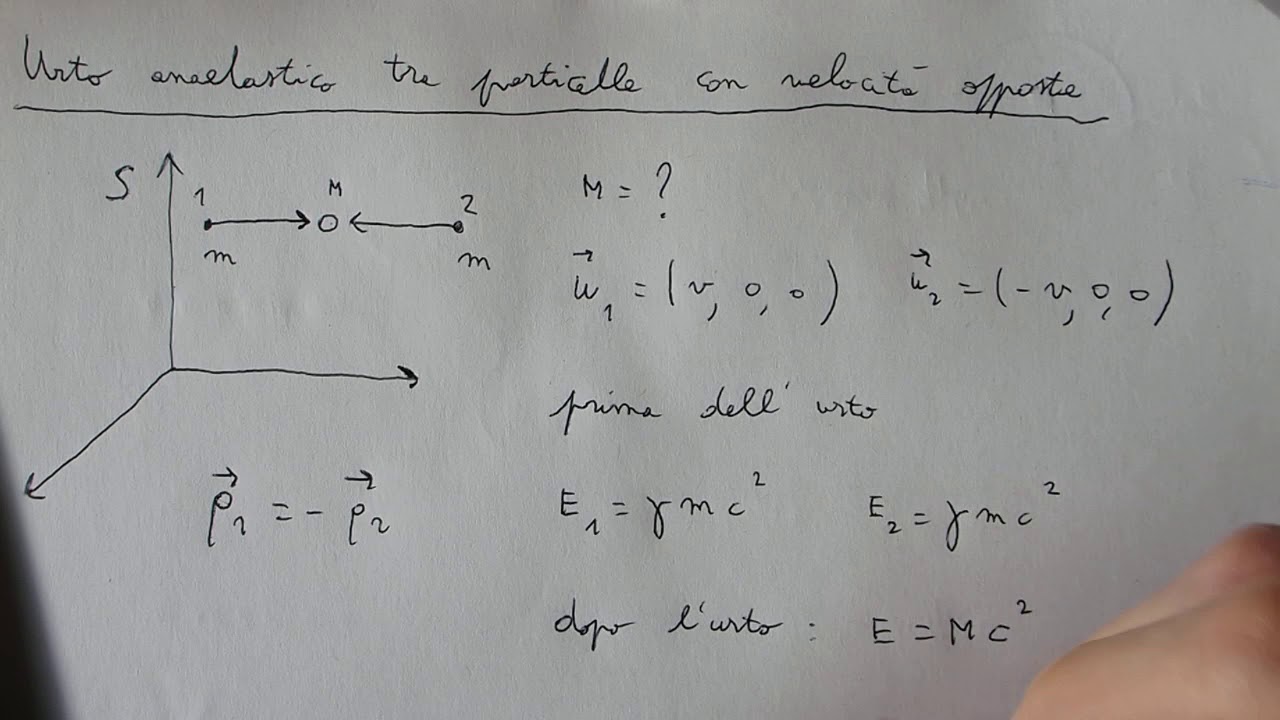 Urto anaelastico tra particelle con velocità opposte
S
1
M
2
m
m
M = ?
u⃗₁ = (v, 0, 0) u⃗₂ = (-v, 0, 0)
prima dell' urto
p⃗₁ = - p⃗₂
E₁ = γmc² E₂ = γmc²
dopo l'urto : E = Mc²